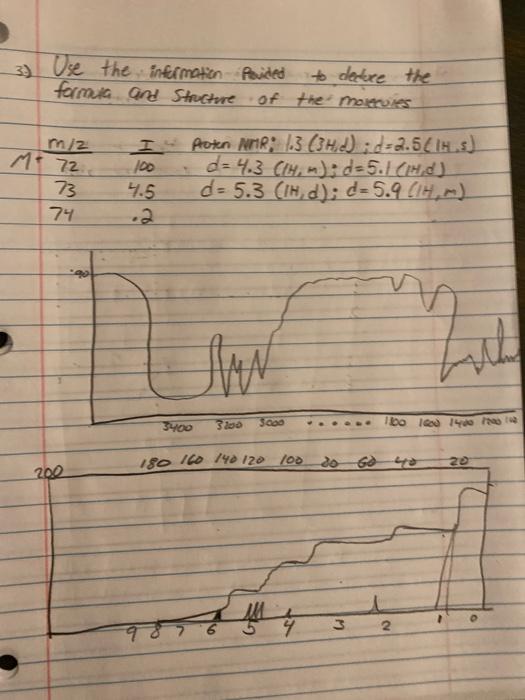 3) Use the information Provided to deduce the
formula and Structure of the molecules
m/z I Proton NMR; 1.3 (3H,d) ; d=2.5(1H,s)
M+ 72 100 d=4.3 (1H,m); d=5.1 (1H,d)
73 4.5 d=5.3 (1H,d); d=5.9 (1H,m)
74 .2
90
3400 3200 3000 ...... 1800 1600 1400 1200
200 180 160 140 120 100 80 60 40 20
9 8 7 6 5 4 3 2 1 0